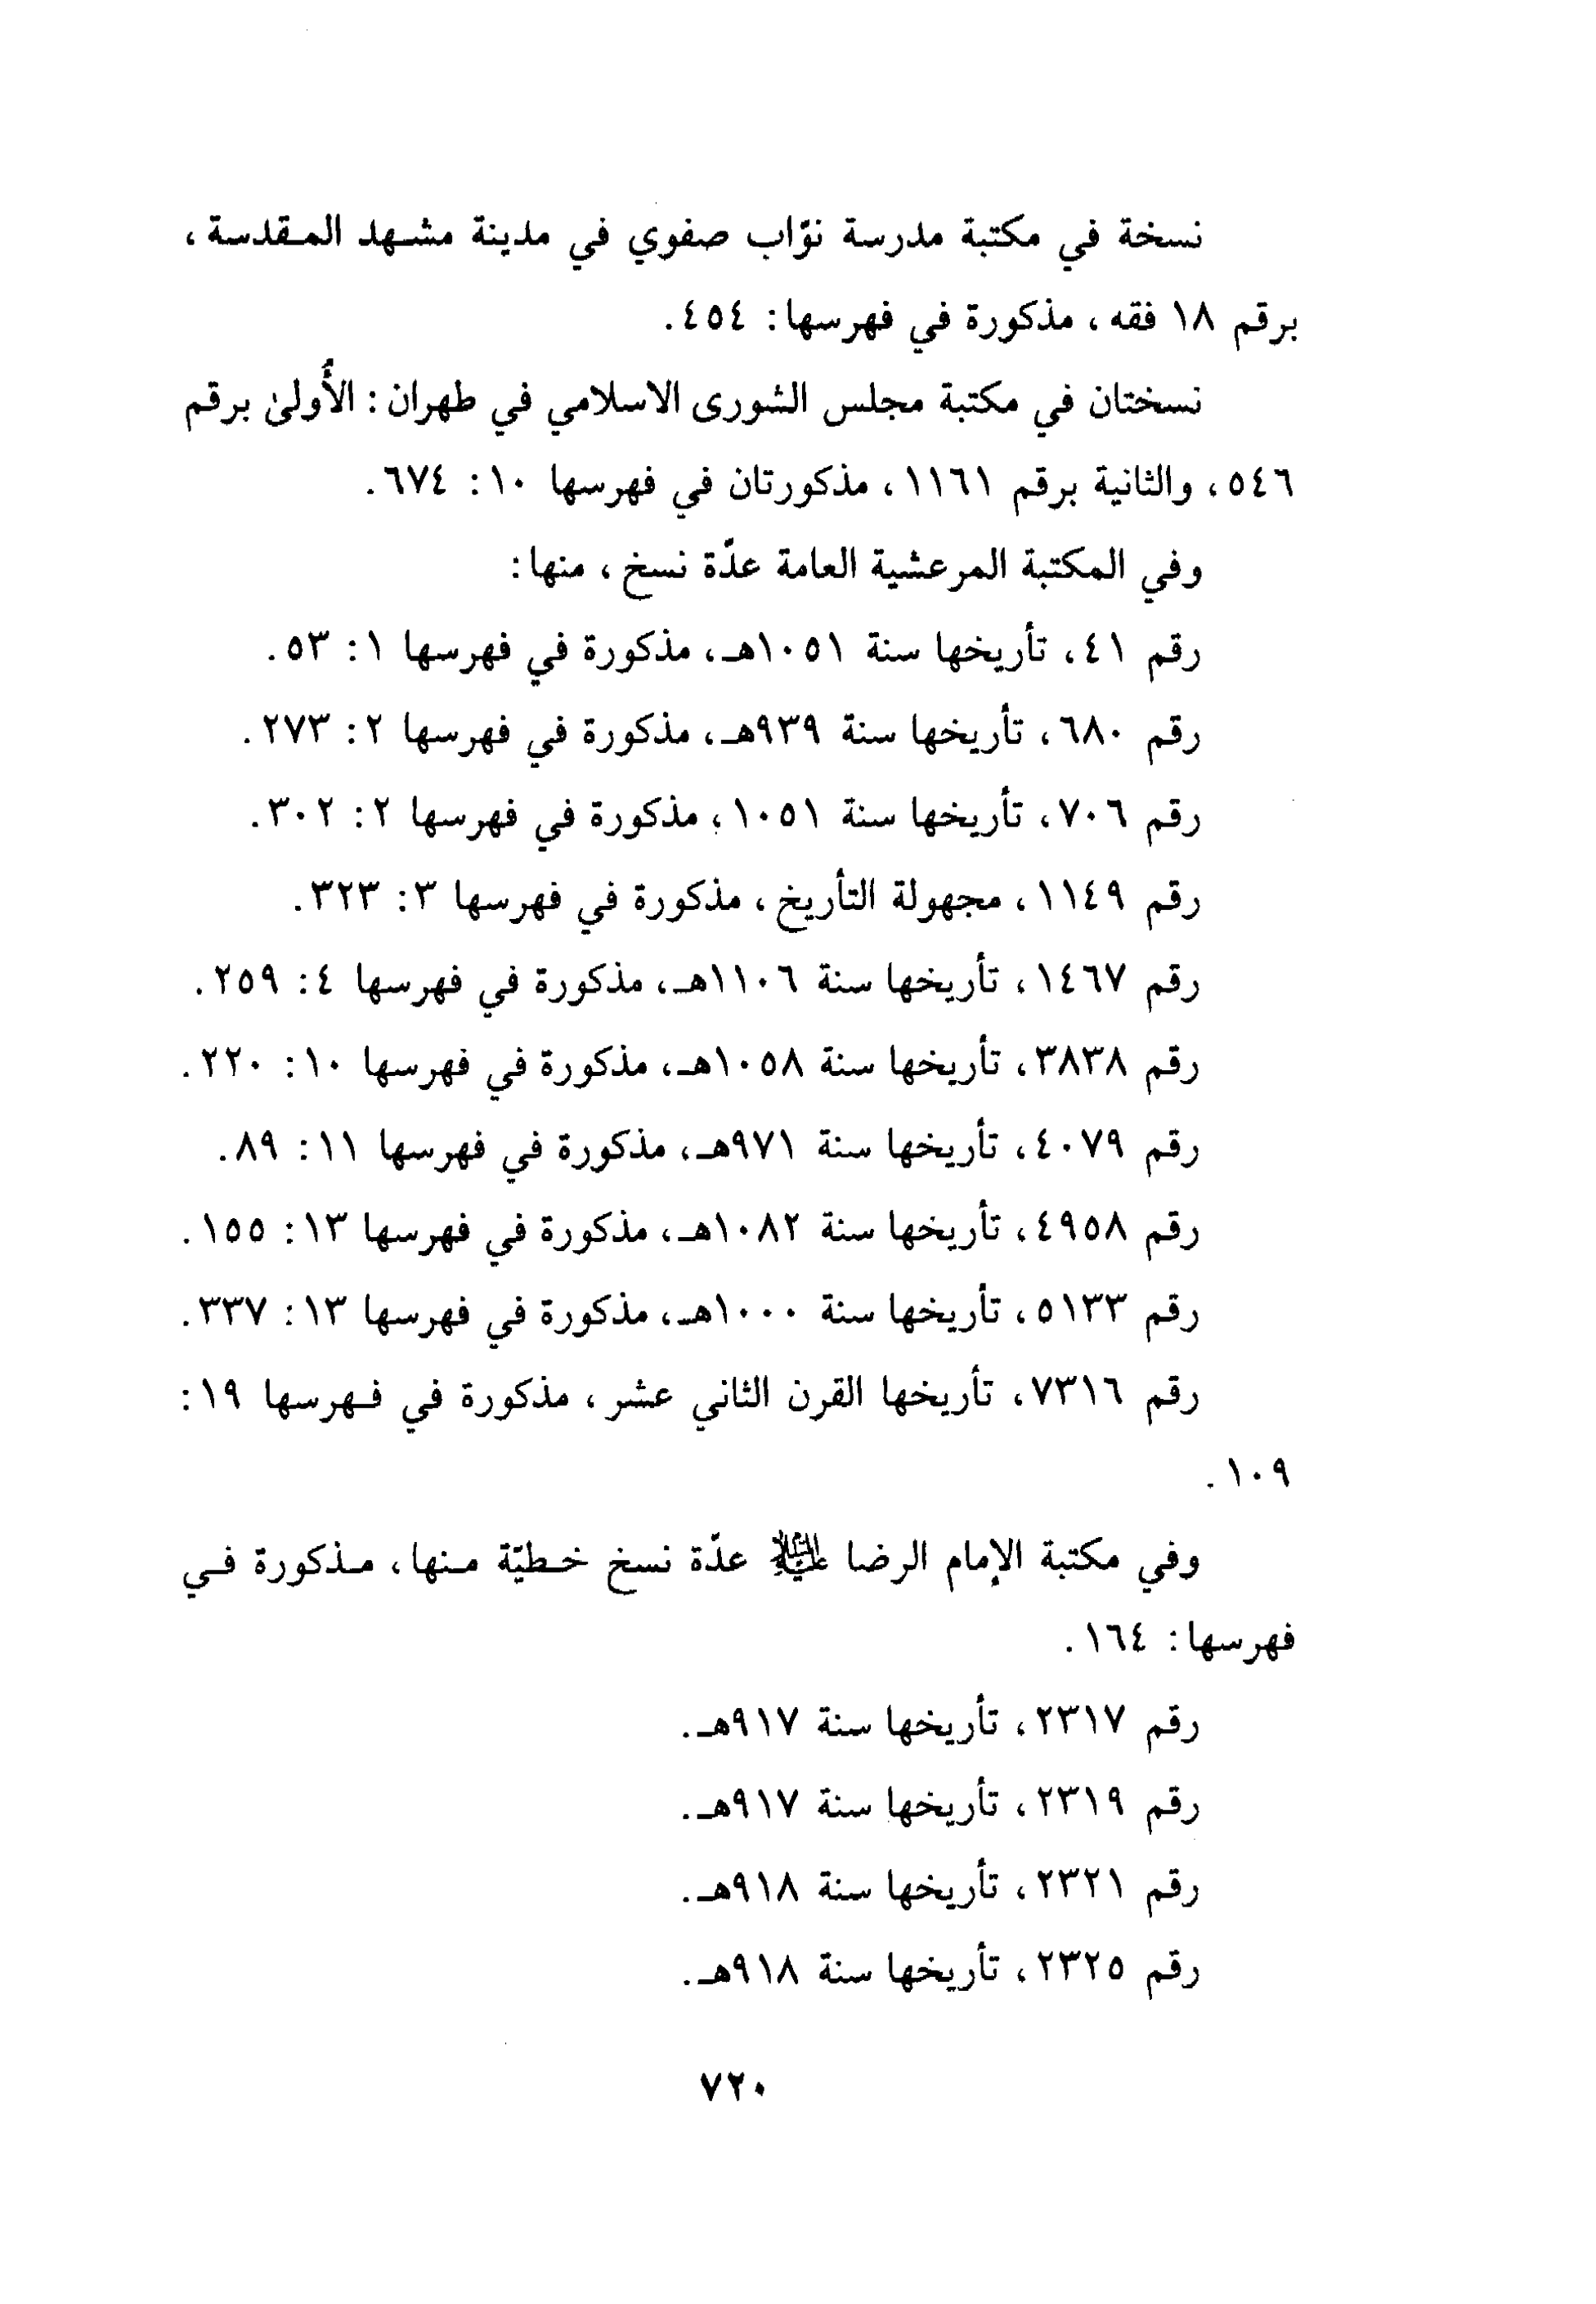 نسخة في مكتبة مدرسة نوّاب صفوي في مدينة مشهد المقدسة ،
برقم ١٨ فقه ، مذكورة في فهرسها : ٤٥٤ .
نسختان في مكتبة مجلس الشورى الاسلامي في طهران : الأُولىٰ برقم
٥٤٦ ، والثانية برقم ١١٦١ ، مذكورتان في فهرسها ١٠ : ٦٧٤ .
وفي المكتبة المرعشية العامة عدّة نسخ ، منها :
رقم ٤١ ، تأريخها سنة ١٠٥١هـ ، مذكورة في فهرسها ١ : ٥٣ .
رقم ٦٨٠ ، تأريخها سنة ٩٣٩هـ ، مذكورة في فهرسها ٢ : ٢٧٣ .
رقم ٧٠٦ ، تأريخها سنة ١٠٥١ ، مذكورة في فهرسها ٢ : ٣٠٢ .
رقم ١١٤٩ ، مجهولة التأريخ ، مذكورة في فهرسها ٣ : ٣٢٣ .
رقم ١٤٦٧ ، تأريخها سنة ١١٠٦هـ ، مذكورة في فهرسها ٤ : ٢٥٩ .
رقم ٣٨٣٨ ، تأريخها سنة ١٠٥٨هـ ، مذكورة في فهرسها ١٠ : ٢٢٠ .
رقم ٤٠٧٩ ، تأريخها سنة ٩٧١هـ ، مذكورة في فهرسها ١١ : ٨٩ .
رقم ٤٩٥٨ ، تأريخها سنة ١٠٨٢هـ ، مذكورة في فهرسها ١٣ : ١٥٥ .
رقم ٥١٣٣ ، تأريخها سنة ١٠٠٠هـ ، مذكورة في فهرسها ١٣ : ٣٣٧ .
رقم ٧٣١٦ ، تأريخها القرن الثاني عشر ، مذكورة في فهرسها ١٩ :
١٠٩ .
وفي مكتبة الإمام الرضا عليه السلام عدّة نسخ خطيّة منها ، مذكورة في
فهرسها : ١٦٤ .
رقم ٢٣١٧ ، تأريخها سنة ٩١٧هـ .
رقم ٢٣١٩ ، تأريخها سنة ٩١٧هـ .
رقم ٢٣٢١ ، تأريخها سنة ٩١٨هـ .
رقم ٢٣٢٥ ، تأريخها سنة ٩١٨هـ .
٧٢٠